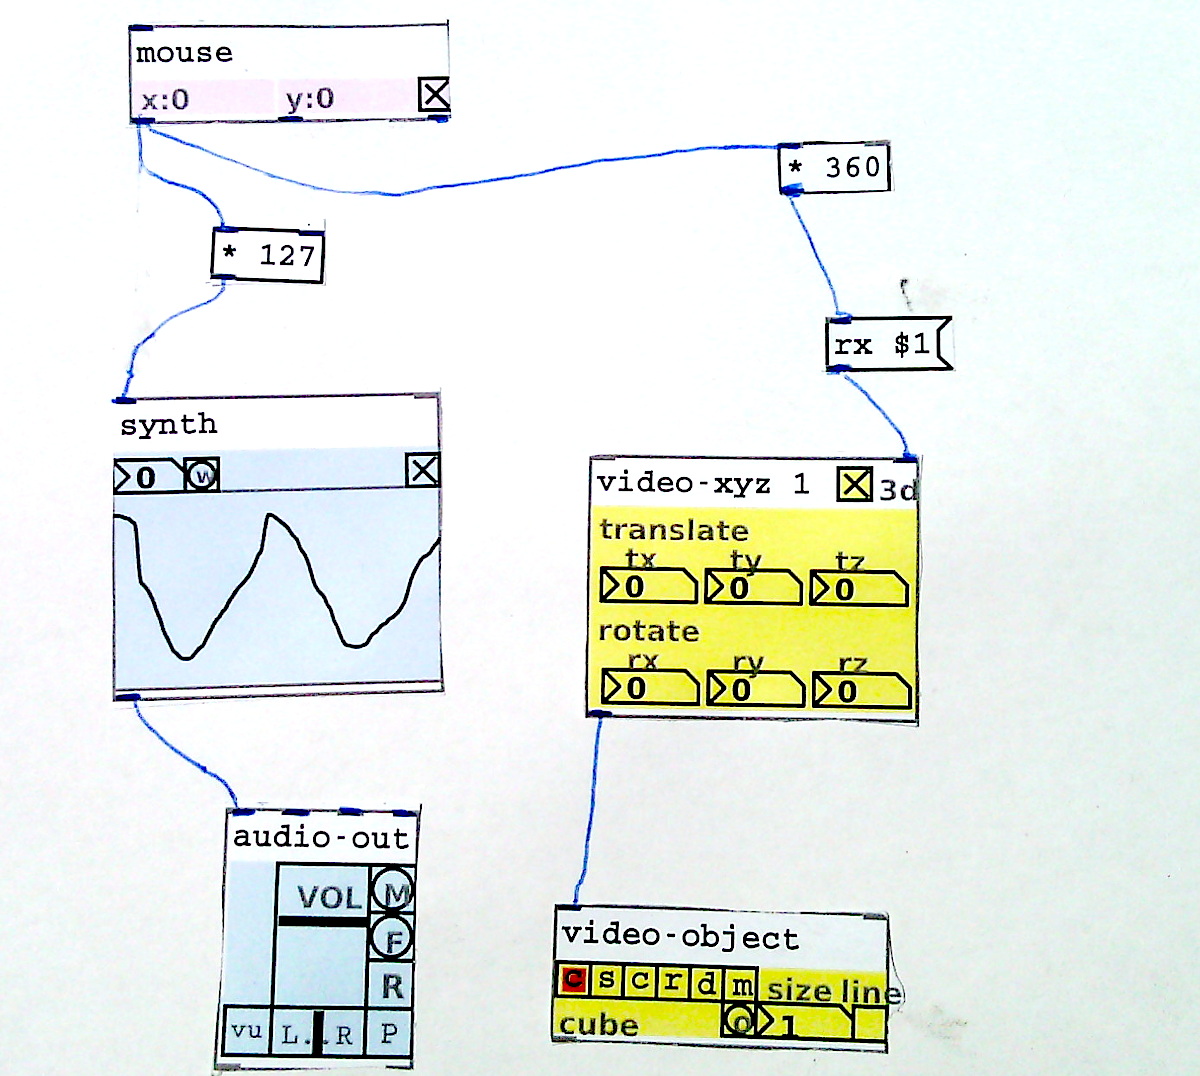 mouse
x:0 y:0
* 360
* 127
rx $1
synth
0 w
video-xyz 1 3d
translate
tx ty tz
0 0 0
rotate
rx ry rz
0 0 0
audio-out
VOL M
F
R
vu L..R P
video-object
c s c r d m size line
cube o 1